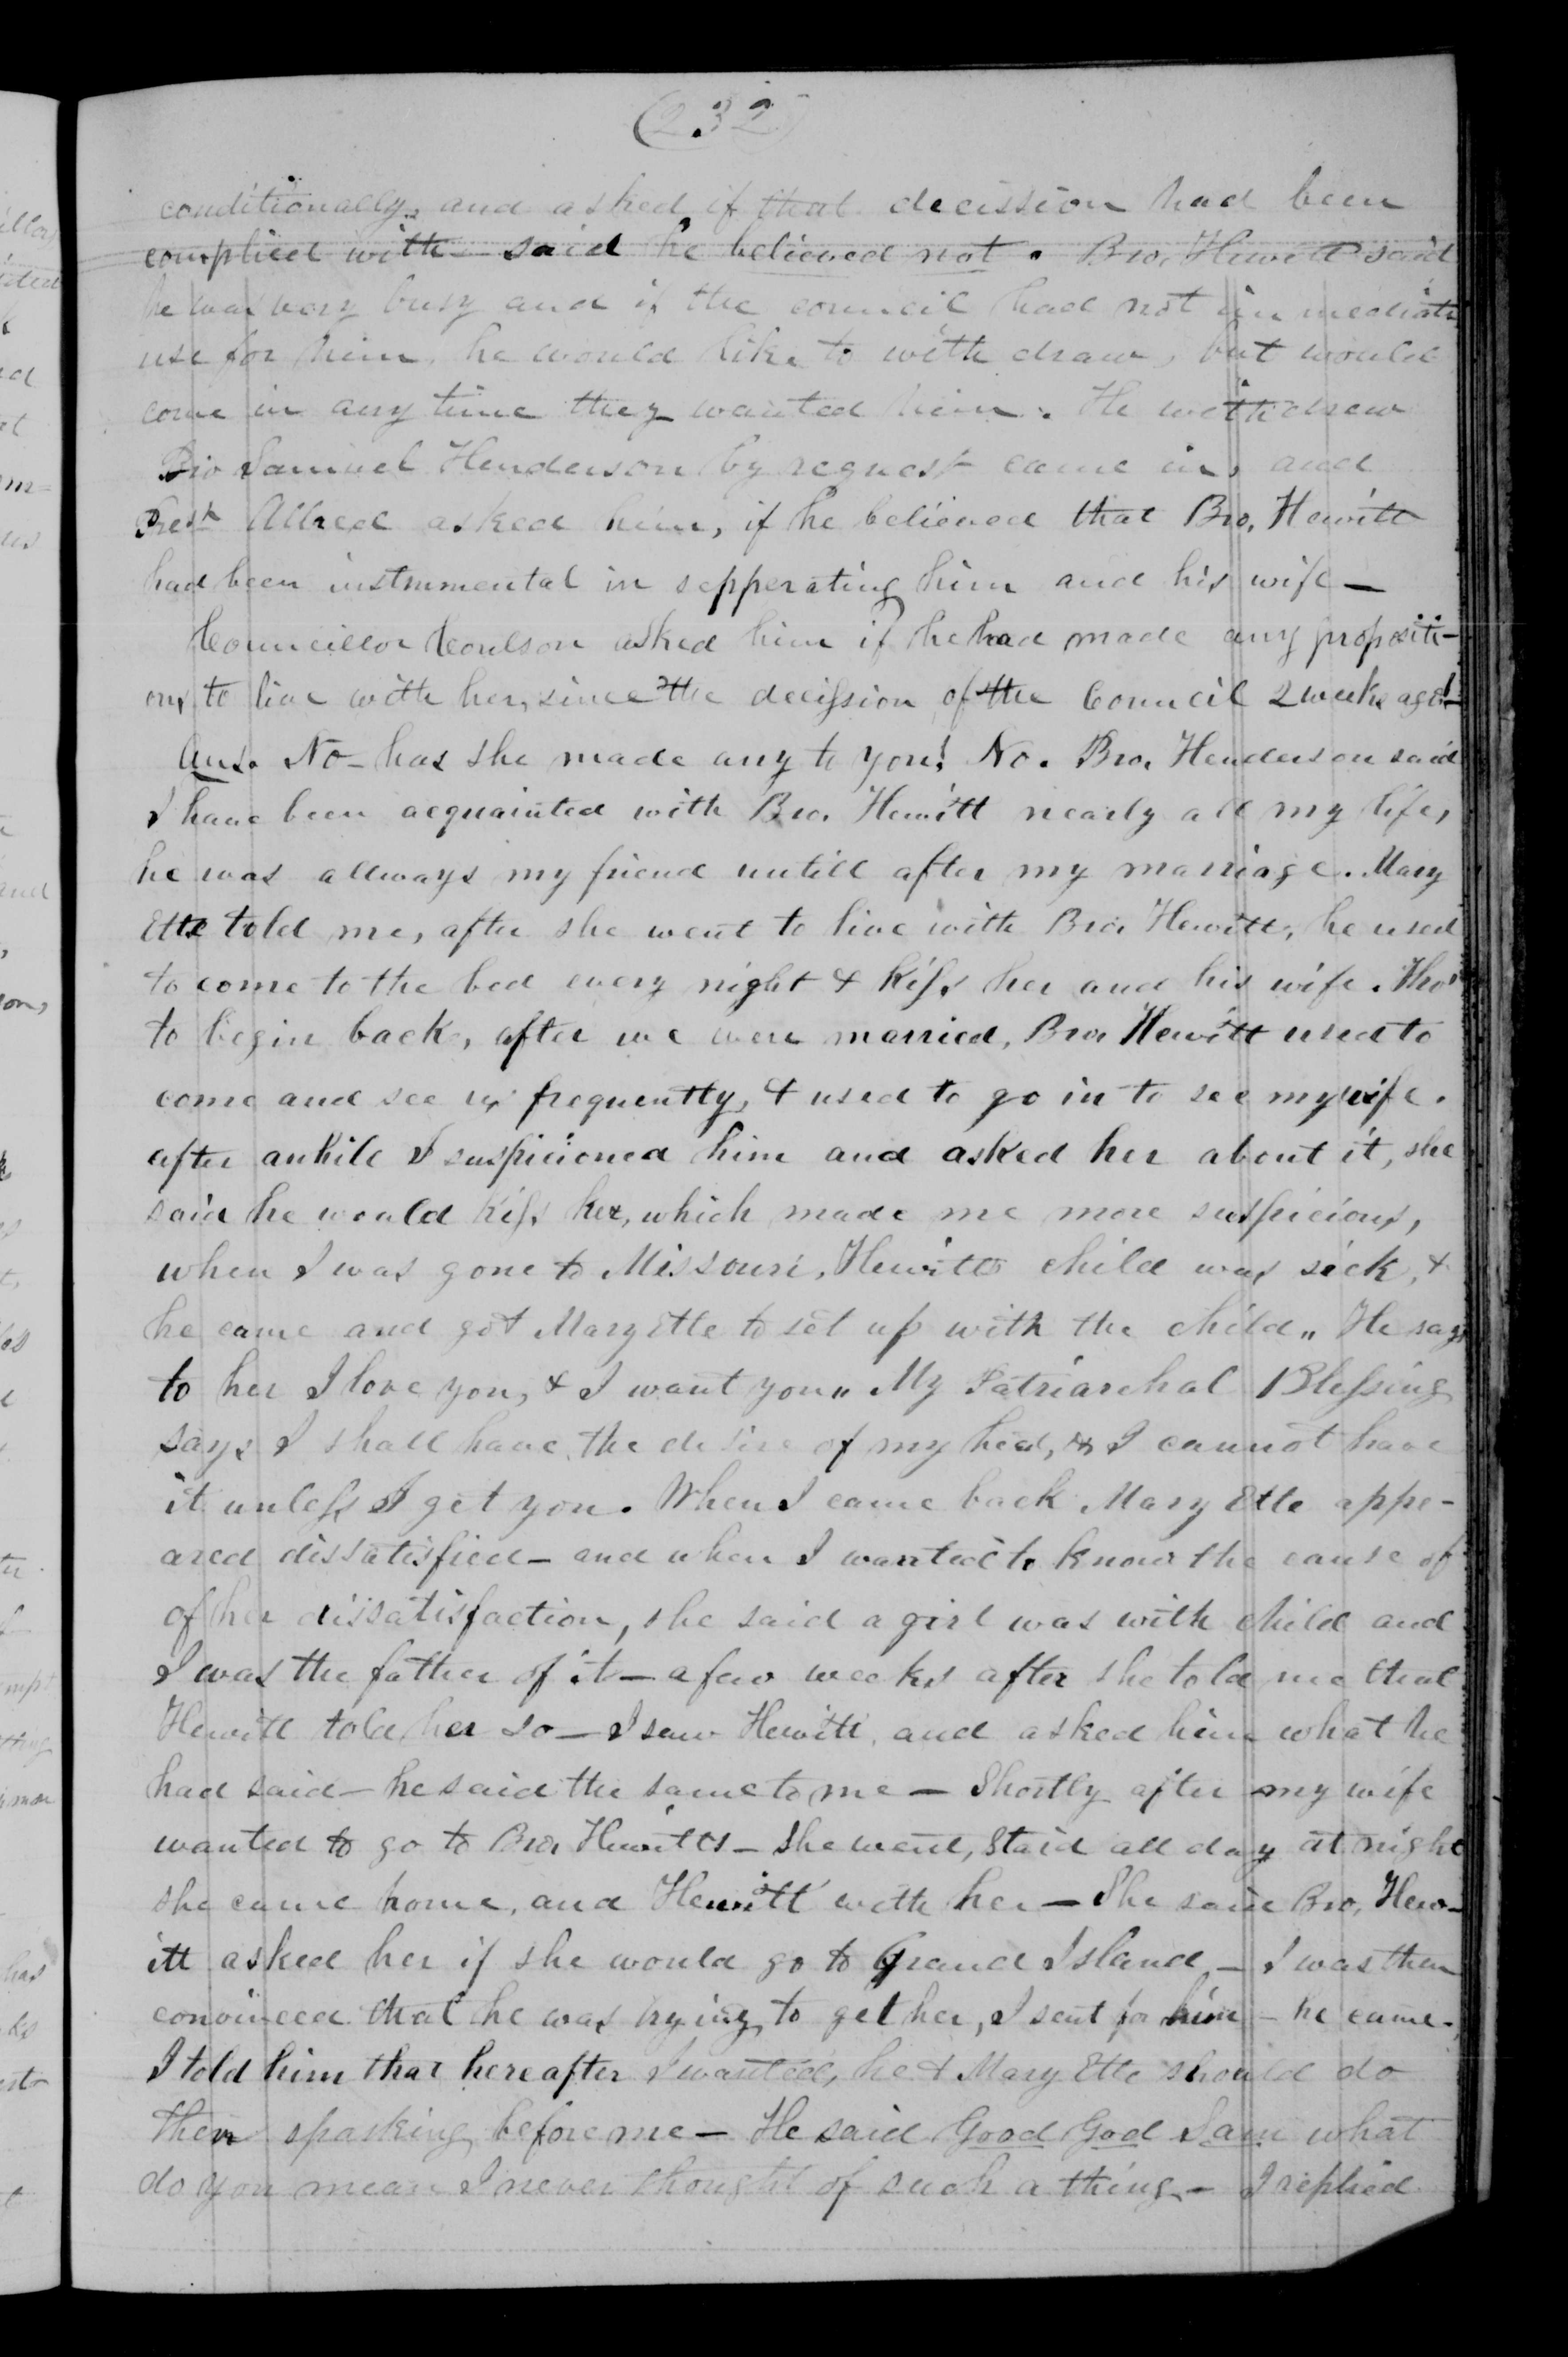 (232)
conditionally, and asked if that decission had been
complied with - said he believed not. Bro. Hewitt said
he was very busy and if the council had not immediate
use for him, he would like to with draw, but would
come in any time they wanted him. He withdrew
Bro Samuel Henderson by request came in, and
Prest Allred asked him, if he believed that Bro, Hewitt
had been instrumental in sepperating him and his wife —
Councillor Coulson asked him if he had made any propositi-
ons to live with her, since the decission of the Council 2 weeks ago! -
Ans. No - has she made any to you! No. Bro. Henderson said
I have been acquainted with Bro. Hewitt nearly all my life,
he was allways my friend untill after my marriage. Mary
Ette told me, after she went to live with Bro. Hewitt, he used
to come to the bed every night & kiss her and his wife. Tho'
to begin back, after we were married, Bro. Hewitt used to
come and see us frequently, & used to go in to see my wife.
after awhile I suspicioned him and asked her about it, she
said he would kiss her, which made me more suspicious,
when I was gone to Missouri, Hewitts child was sick, &
he came and got Mary Ette to set up with the child „ He says
to her I love you, & I want you „ My Patriarchal Blessing
says I shall have the desire of my head, & I cannot have
it unless I get you. When I came back Mary Ette appe-
ared dissatisfied - and when I wanted to know the cause of
of her dissatisfaction, she said a girl was with child and
I was the father of it — a few weeks after she told me that
Hewitt told her so — I saw Hewitt, and asked him what he
had said — he said the same to me — Shortly after my wife
wanted to go to Bro Hewitts — She went, staid all day at night
she came home, and Hewitt with her — She said Bro, Hew-
itt asked her if she would go to Grand Island, — I was then
convinced that he was trying to get her, I sent for him - he came.
I told him that hereafter I wanted, he & Mary Ette should do
their sparking before me — He said Good God Sam what
do you mean I never thought of such a thing. - I replied